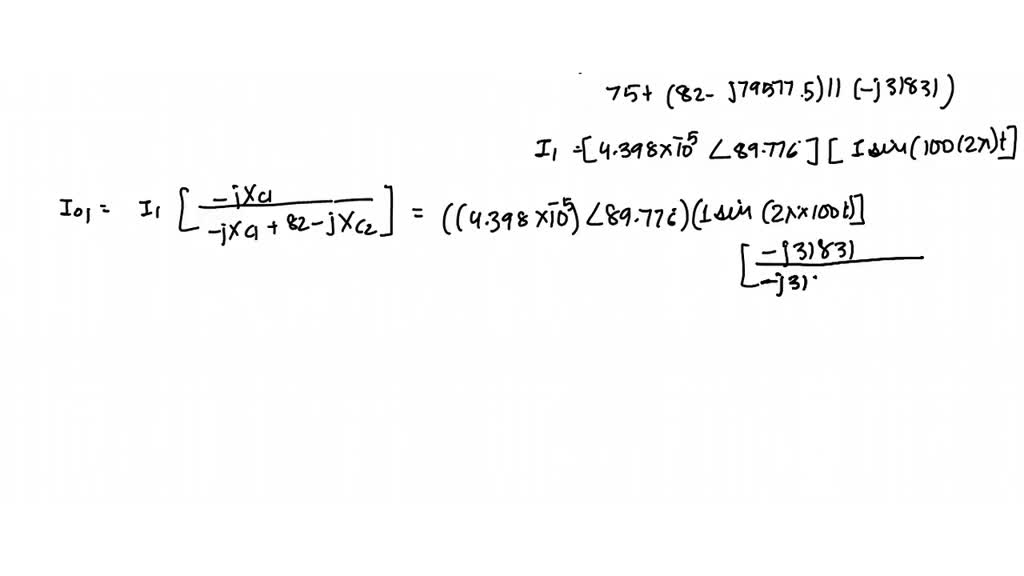 75+ (82- j79577.5)|| (-j31831)
I₁ =[4.398×10⁻⁵ ∠89.776] [ 1 sin(100(2π)t]
I₀₁ = I₁ [ -jXc1 / -jXc1 + 82-jXc2 ] = ((4.398×10⁻⁵) ∠89.776)(1 sin (2π×100t)]
[ -j31831 / -j31